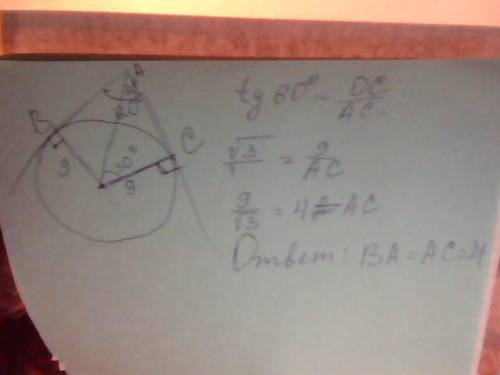 B
C
9
30°
9
tg 60° = DC/AC
√3/1 = 9/AC
9/√3 = 4 AC
Ответ: BA = AC = 4